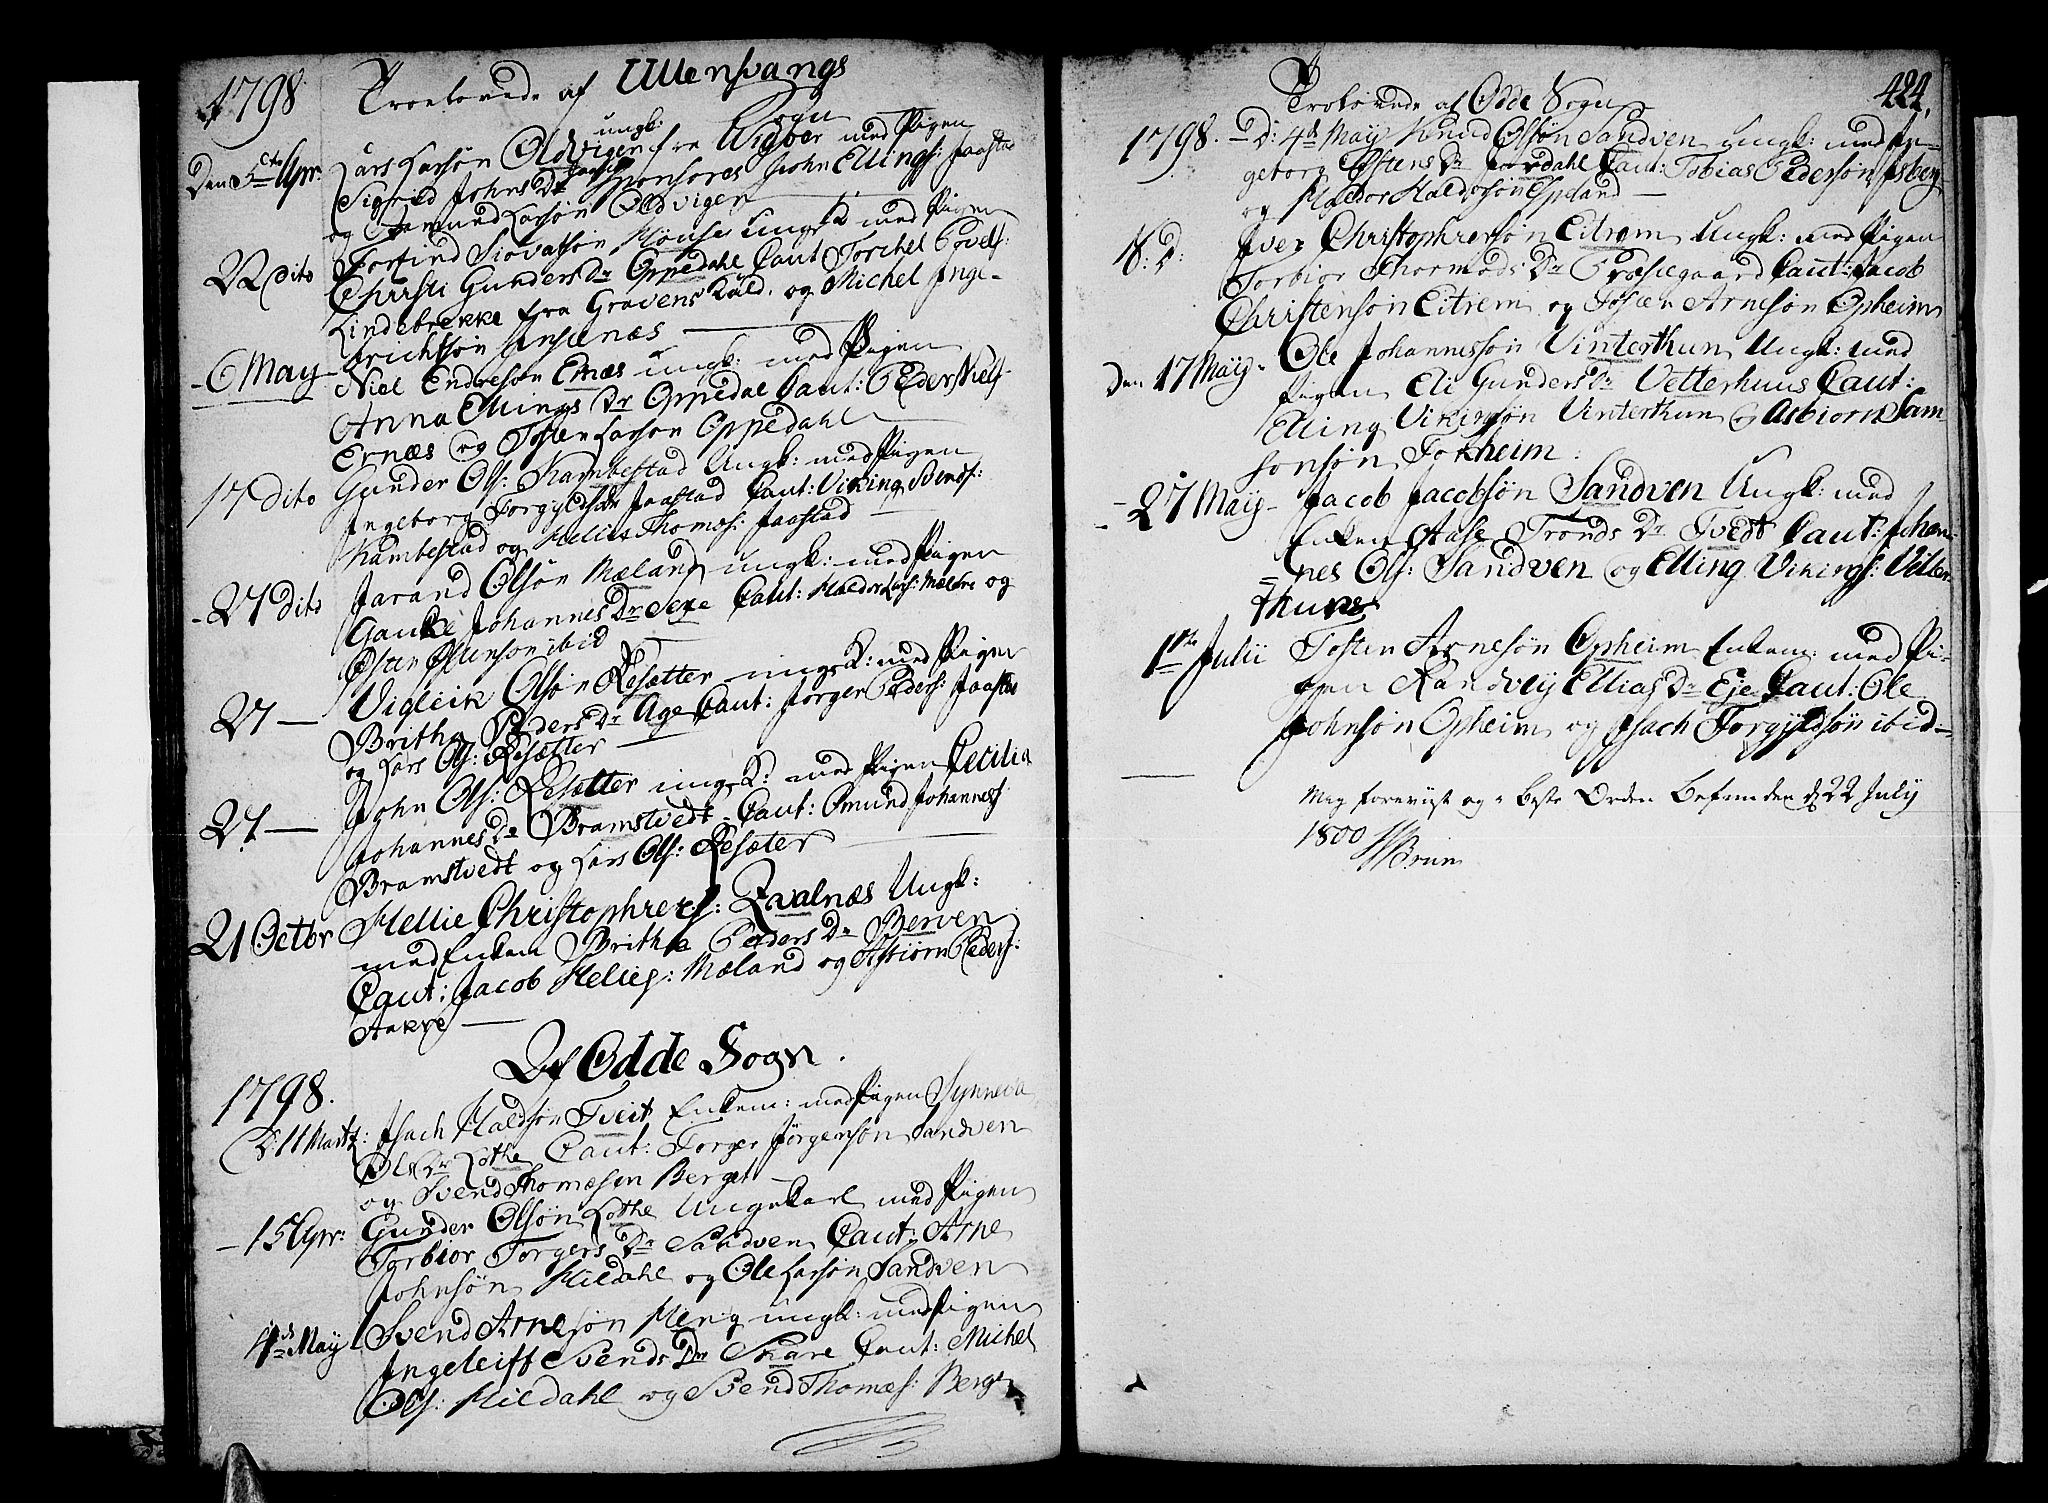 1798 Troelovede af Ullensvangs
Sogn
ungk:
Den 5te Apr. Lars Larsøn Oldvigen fra Wigøer med Pigen
Sigrid Johns Dr Jaastad Sponsores John Ellings: Jaastad
og Omund Larsøn Oldvigen
22 dito Torfind Siovatsøn Hønse ungk: med Pigen
Christi Gunders Dr Oppedahl Caut Torchel Povels:
Lindebrekke fra Gravens Kald. og Michel Inge-
brichtsøn Jonsenæs
- 6 May Niel Endresøn Ernæs ungk: med Pigen
Anna Ellings Dr Oppedal Caut: Peder Niels:
Ernæs og Tosten Larsøn Oppedahl
17 dito Gunder Ols: Kambestad Ungk: med Pigen
Ingeborg Torgylds Dr Jaastad Caut: Viking Bends:
Kambestad og Helies Thomes: Jaastad
- 27 dito Jarand Olsøn Mæland ungk: med Pigen
Gauke Johannes Dr Sexe Caut: Haldor Lars: Mæland og
Østen Østensøn ibid
27 — Vigleik Olsøn Resætter ungk: med Pigen
Britha Peders Dr Age Caut: Jørgen Peders: Jaastad
og Lars Ols: Resætter
27 — John Ols: Resætter ungk: med Pigen Cecilia
Johannes Dr Bramstvedt Caut: Omund Johannes:
Bramstvedt og Lars Ols: Resæter
21 Octbr Hellie Christophers: Qvalnæs Ungk:
med Enken Britha Peders Dr Berven
Caut: Jacob Helies: Mæland og Asbiørn Peders:
Aakre
Af Odde Sogn.
1798.
D: 11 Martz: Isach Haldsøn Tveit Enkem: med Pigen Synneva
Ols Dr Lothe Caut: Torger Jørgensøn Sandven
og Svend Thomæsøn Berget
- 15 Apr: Gunder Olsøn Lothe Ungekarl med Pigen
Torbior Torgers Dr Sandven Caut: Arne
Johnsøn Hildahl og Ole Larsøn Sandven
4de May Svend Arnesøn Meng ungk: med Pigen
Ingeleiff Svends Dr Skare Caut: Michel
Ols: Hildahl og Svend Thomæs: Berge
424.
Trolovede af Odde Sogn
1798. - D: 4de May Knud Olsøn Sandven ungk: med In-
geborg Østens Dr Jordahl Caut: Tobias Pedersøn Isberg
og Haldor Haldorsøn Espeland
S: D: Iver Christophersøn Eitrem Ungk: med Pigen
Torbior Thormods Dr Præstegaard Caut: Jacob
Christensøn Eitrem og Tosten Arnesøn Opheim
Den 17 May. Ole Johannessøn Vinterthun Ungk: med
Pigen Eli Gunders Dr Vetterhuus Caut:
Elling Vikingsøn Vinterthun og Asbiorn Sam-
sonsøn Tokheim.
- 27 May - Jacob Jacobsøn Sandven Ungk: med
Enken Aase Tronds Dr Tvedt Caut: Johan-
nes Ols: Sandven og Elling Vikings: Vitter-
thuns
1te Julii Tosten Arnesøn Opheim Enkem: med Pi-
gen Randvey Ellias Dr Eje Caut: Ole
Johnsøn Opheim og Isach Torgyldsøn ibid-
Mig foreviist og i beste Orden befunden d 22 July
1800 JBrun